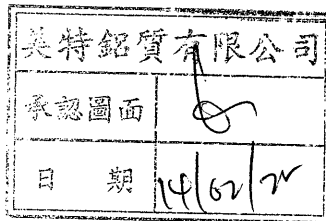 美特鋁質有限公司
承認圖面
日期 14/02/2